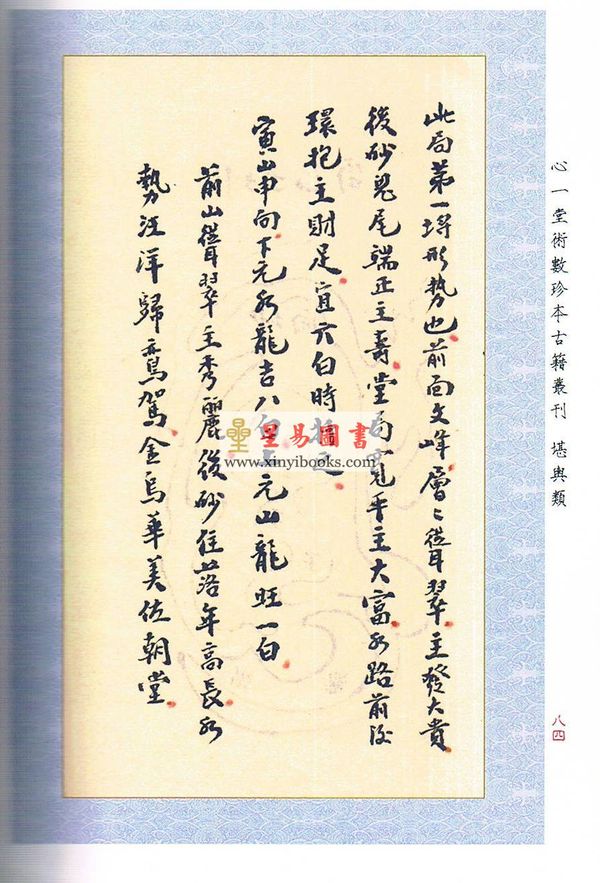 心一堂術數珍本古籍叢刊 堪輿類
八四
此局第一塲形势也前面文峰層〻聳翠主發大貴
後砂鬼尾端正主壽堂局平主大富水路前後
環抱主財足宜六白時
寅山申向下元水龍吉八白元山龍旺一白
前山聳翠主秀麗後砂住落年高長水
勢汪洋歸鸞駕金烏華美佐朝堂
星易圖書
www.xinyibooks.com